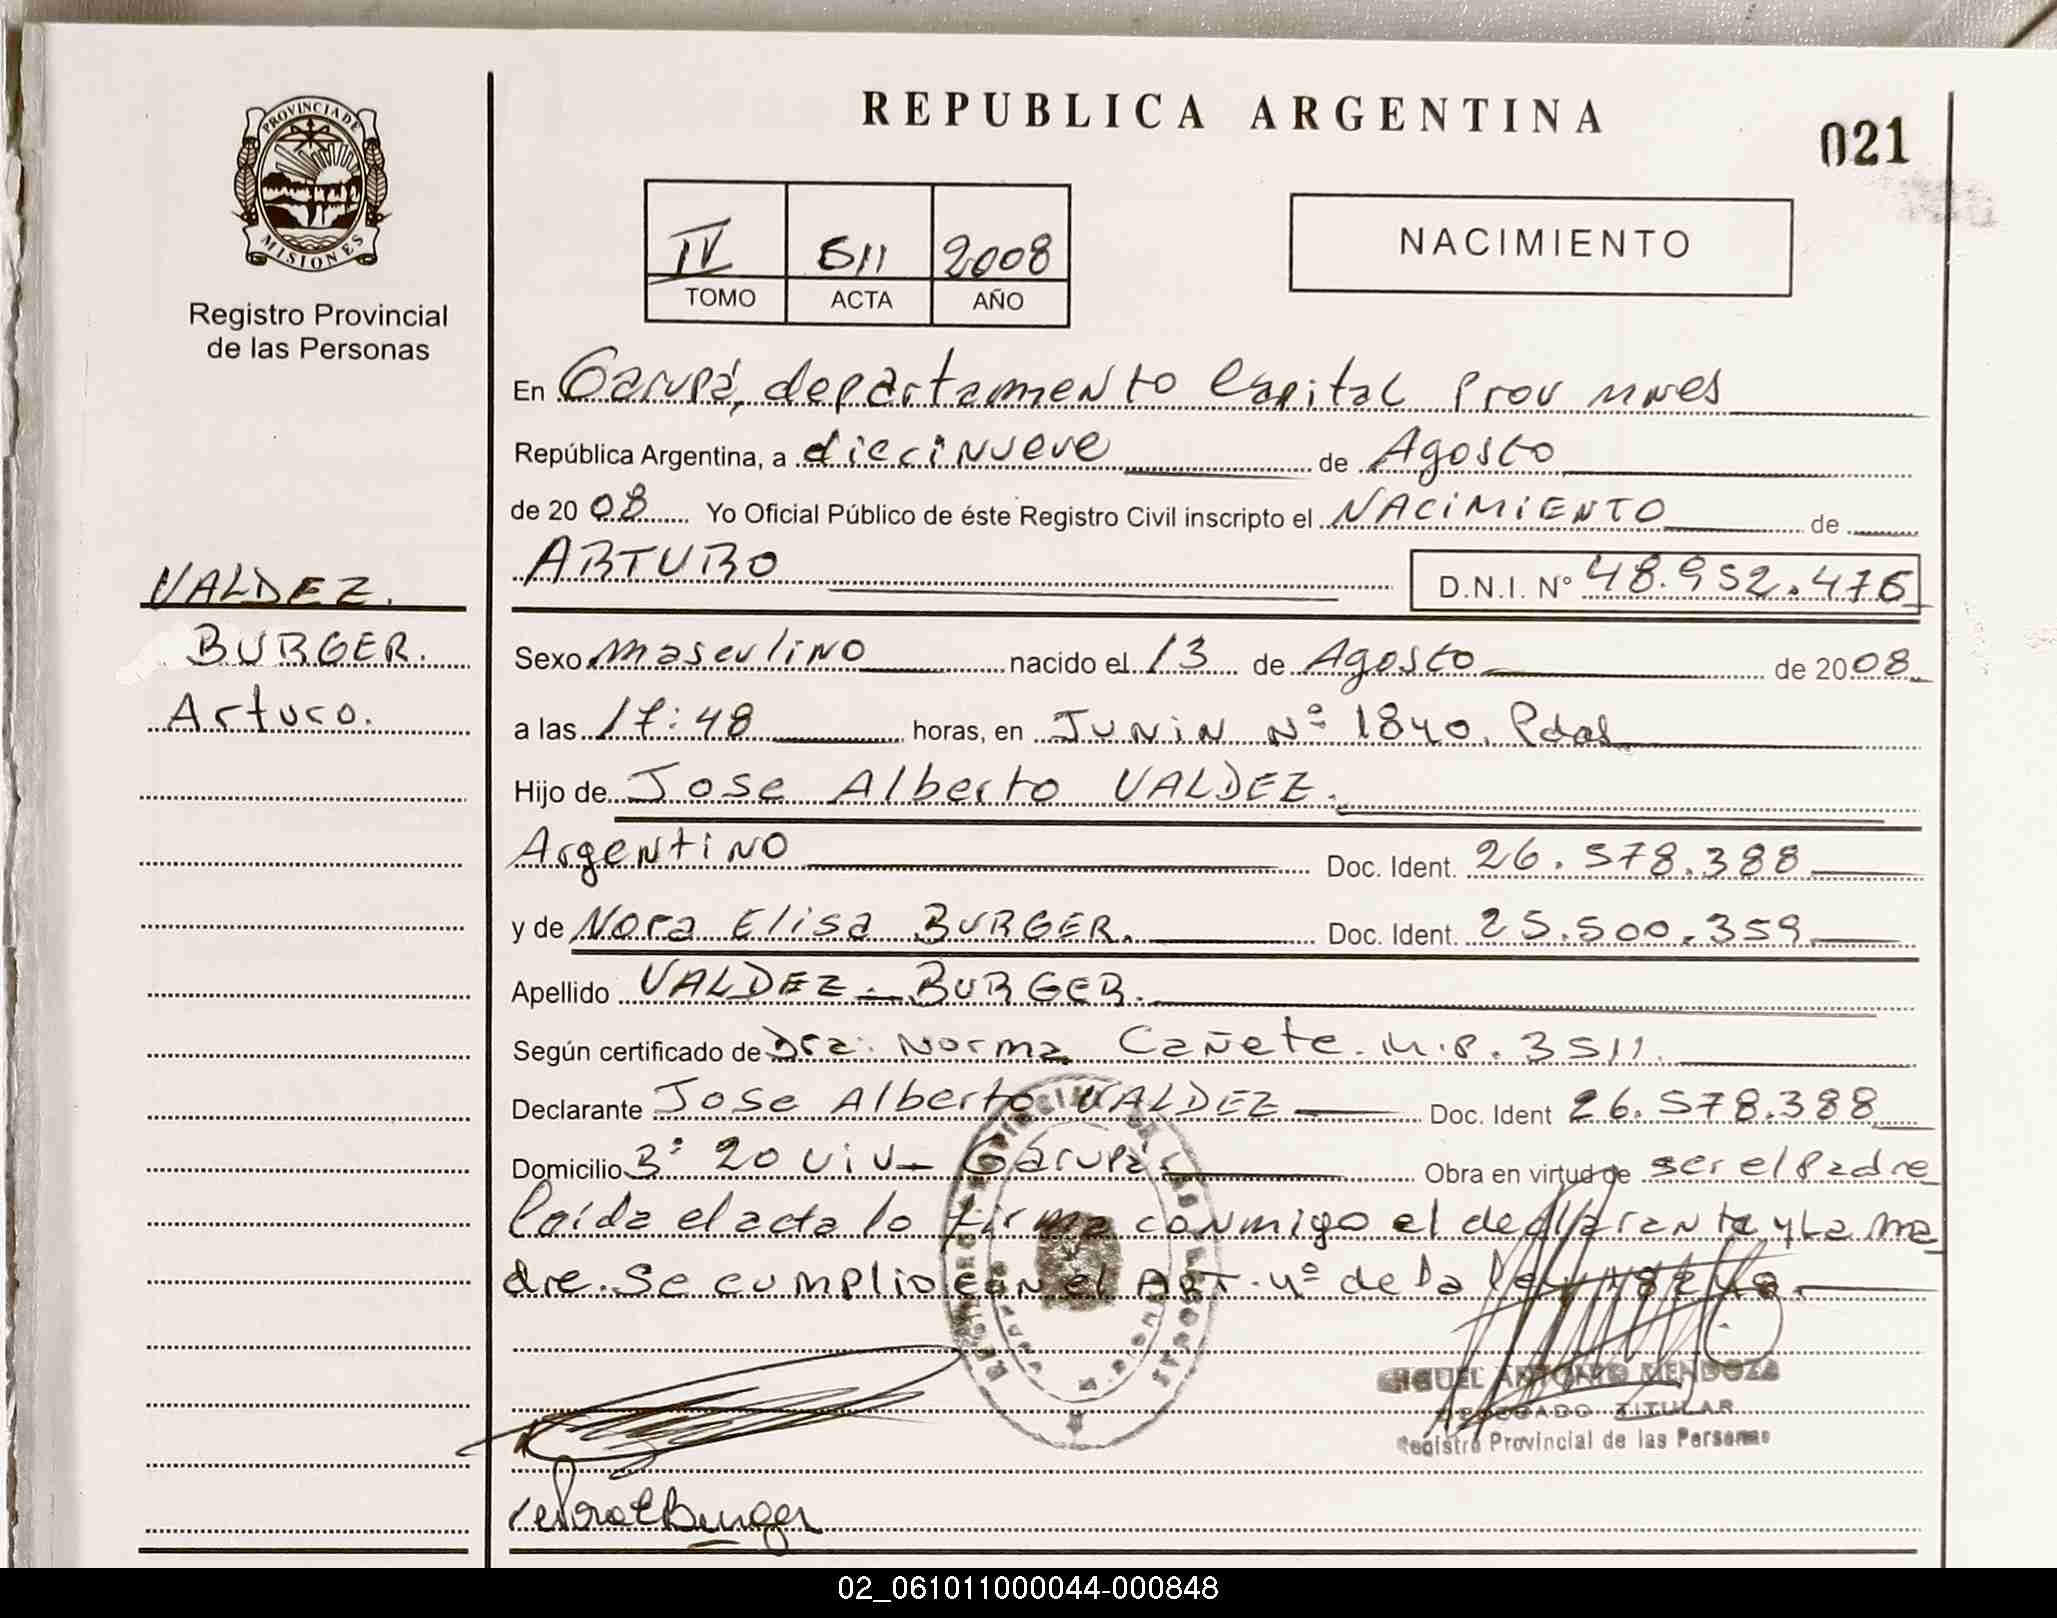 PROVINCIA DE
MISIONES
Registro Provincial
de las Personas
VALDEZ.
BURGER.
Arturo.
REPUBLICA ARGENTINA
021
IV 511 2008
TOMO ACTA AÑO
NACIMIENTO
En Garupá, departamento Capital Prov Mnes
República Argentina, a diecinueve de Agosto
de 2008 Yo Oficial Público de éste Registro Civil inscripto el NACIMIENTO de
ARTURO D.N.I. Nº 48.952.476
Sexo masculino nacido el 13 de Agosto de 2008
a las 17:48 horas, en JUNIN Nº 1840. Pdas
Hijo de Jose Alberto VALDEZ.
Argentino Doc. Ident. 26.578.388
y de Nora Elisa BURGER. Doc. Ident. 25.500.359
Apellido VALDEZ - BURGER.
Según certificado de Dra. Norma Cañete. M.P. 3511.
Declarante Jose Alberto VALDEZ Doc. Ident 26.578.388
Domicilio Bº 20 viv - Garupá. Obra en virtud de ser el Padre
Leída el acta lo firma conmigo el declarante y La ma
dre. Se cumplio con el ART. 4º de la Ley 18248.
MIGUEL ANTONIO MENDOZA
DELEGADO TITULAR
Registro Provincial de las Personas
Burger
02_061011000044-000848